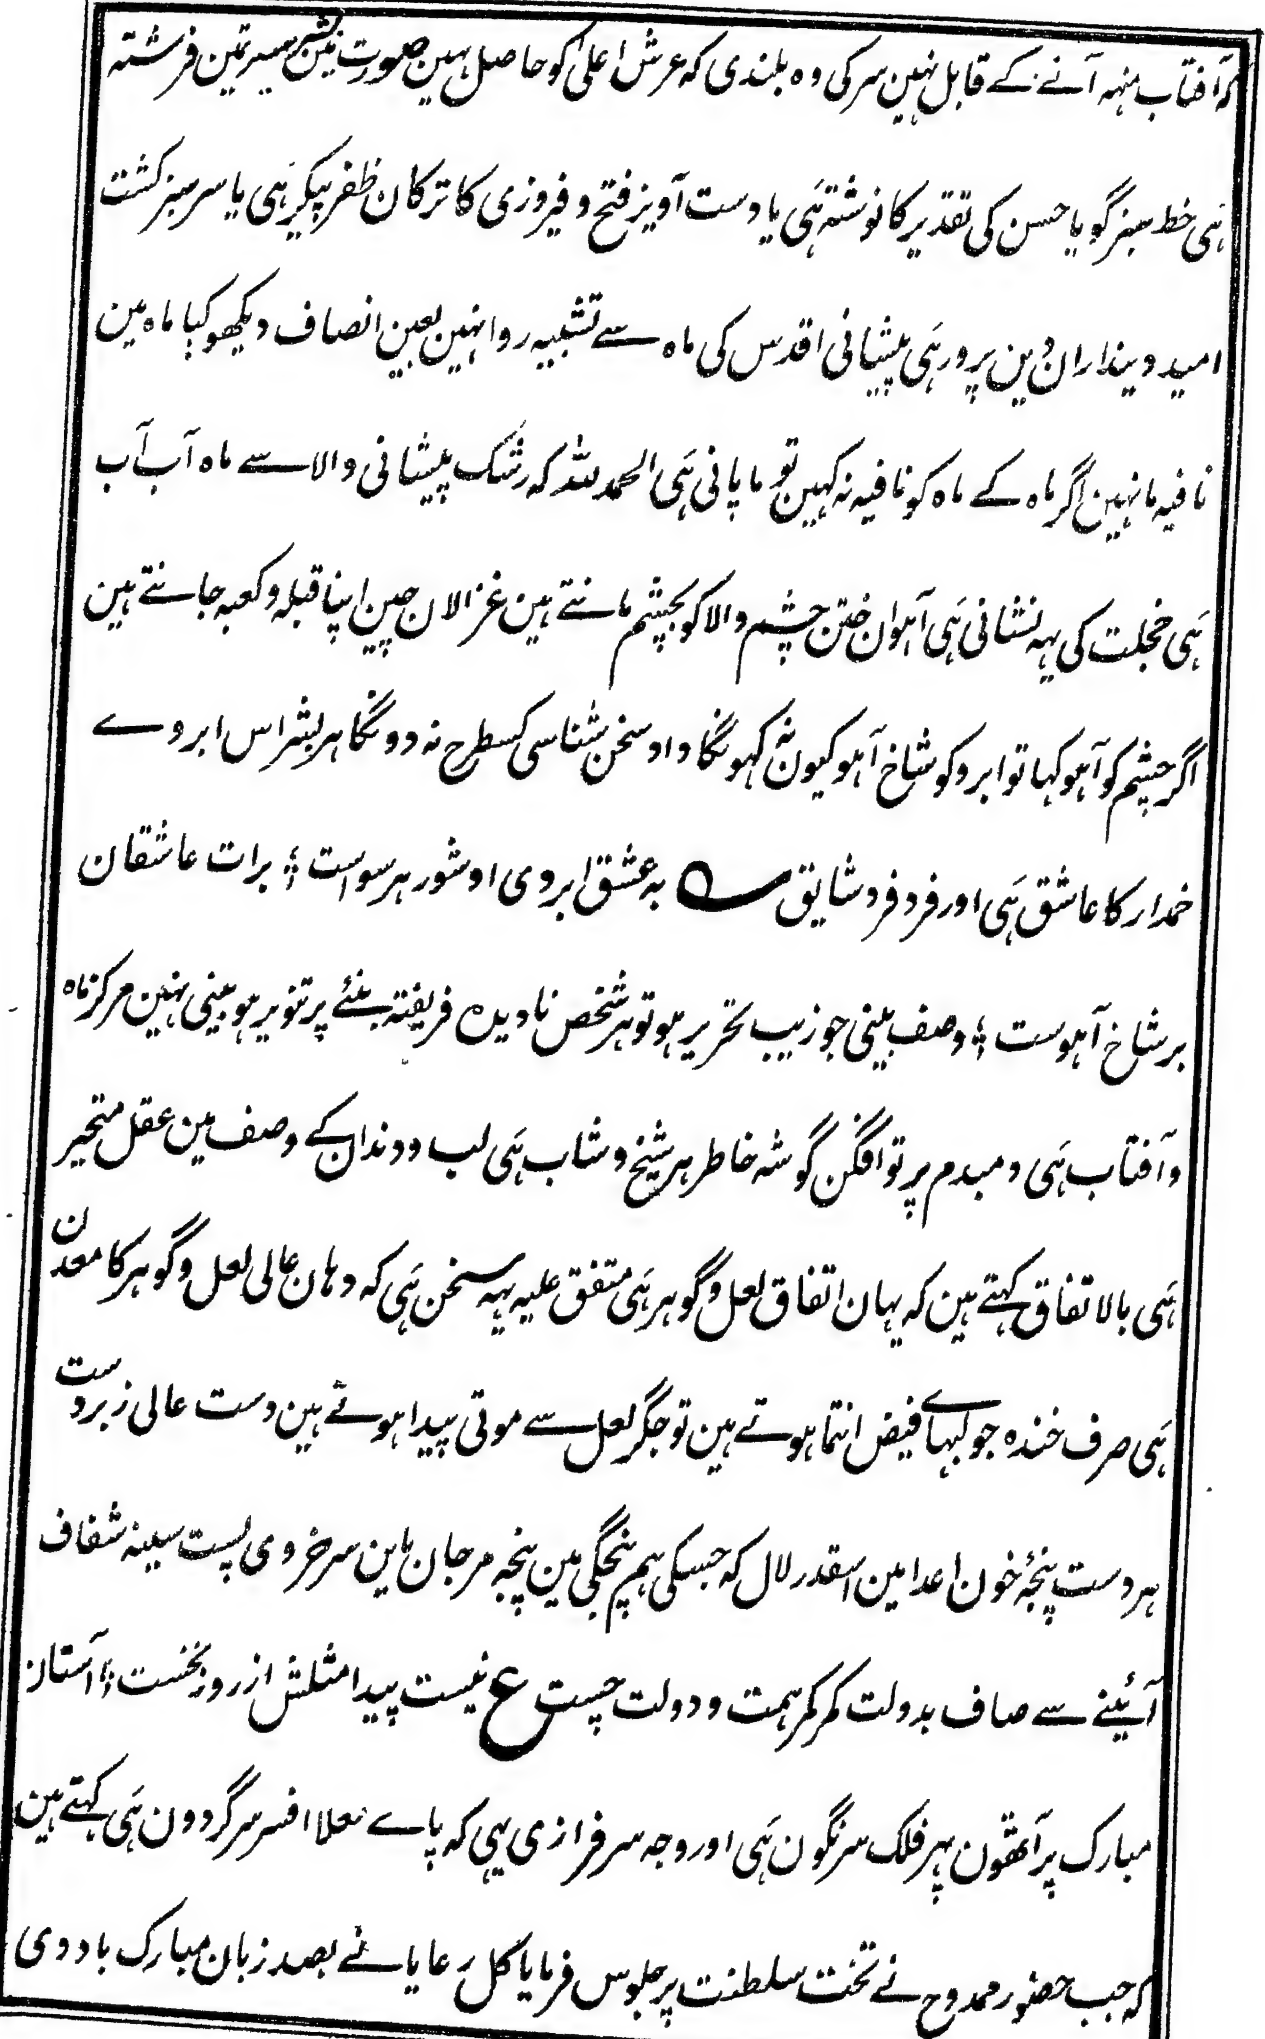 کہ آفتاب منہہ آنے کے قابل نہین سر کی وہ بلندی کہ عرش اعلیٰ کو حاصل نہین صورت مین بشر سیرتمین فرشتہ
ہَی خط سبز گویا حسن کی تقدیر کا نوشتہ ہَی یا دست آویز فتح و فیروزی کا ترکان ظفر پیکر ہَی یا سر سبز کشت
امید دینداران دین پرور ہَی پیشانی اقدس کی ماہ سے تشبیہ روا نہین بعین انصاف دیکھو کیا ماہ مین
نافیہ ما نہین اگر ماہ کے ماہ کو نافیہ نہ کہین تو ما پانی ہَی الحمد للہ کہ رشک پیشانی والا سے ماہ آب آب
ہَی خجلت کی یہہ نشانی ہَی آہوان ختن چشم والا کو بچشم مانتے ہین غزالان چین اپنا قبلہ و کعبہ جانتے ہین
اگر چشم کو آہو کہا تو ابرو کو شاخ آہو کیون نہ کہونگا داد سخن شناسی کسطرح نہ دونگا ہر بشر اس ابروے
خمدار کا عاشق ہَی اور فرد فرد شایق ؎ بہ عشق ابروی او شور ہر سو است ؛ برات عاشقان
بر شاخ آہوست ؛ وصف بینی جو زیب تحریر ہو تو ہر شخص نادیدہ فریفتہ بنئے پر تنویر ہو بینی نہین مرکز ماہ
و آفتاب ہَی دمبدم پرتو افگن گوشہ خاطر ہر شیخ و شاب ہَی لب و دندان کے وصف مین عقل متحیر
ہَی بالاتفاق کہتے ہین کہ یہان اتفاق لعل و گوہر ہَی متفق علیہ یہہ سخن ہَی کہ دہان عالی لعل و گوہر کا معدن
ہَی صرف خندہ جو لبہاے فیض انتما ہوتے ہین تو جگر لعل سے موتی پیدا ہوتے ہین دست عالی زبردست
ہر دست پنجۂ خون اعدا مین اسقدر لال کہ جسکی ہم پنجگی مین پنجہ مرجان باین سرخروی پست سینہ شفاف
آئینے سے صاف بدولت کمر کمر ہمت و دولت چست ع نیست پیدا مثلش از روز نخست ؛ آستان
مبارک پر آٹھون پہر فلک سرنگون ہَی اور وجہ سرفرازی یہی کہ پاے معلا افسر سر گردون ہَی کہتے ہین
کہ جب حضور ممدوح نے تخت سلطنت پر جلوس فرمایا کل رعایا نے بصد زبان مبارک باد دی